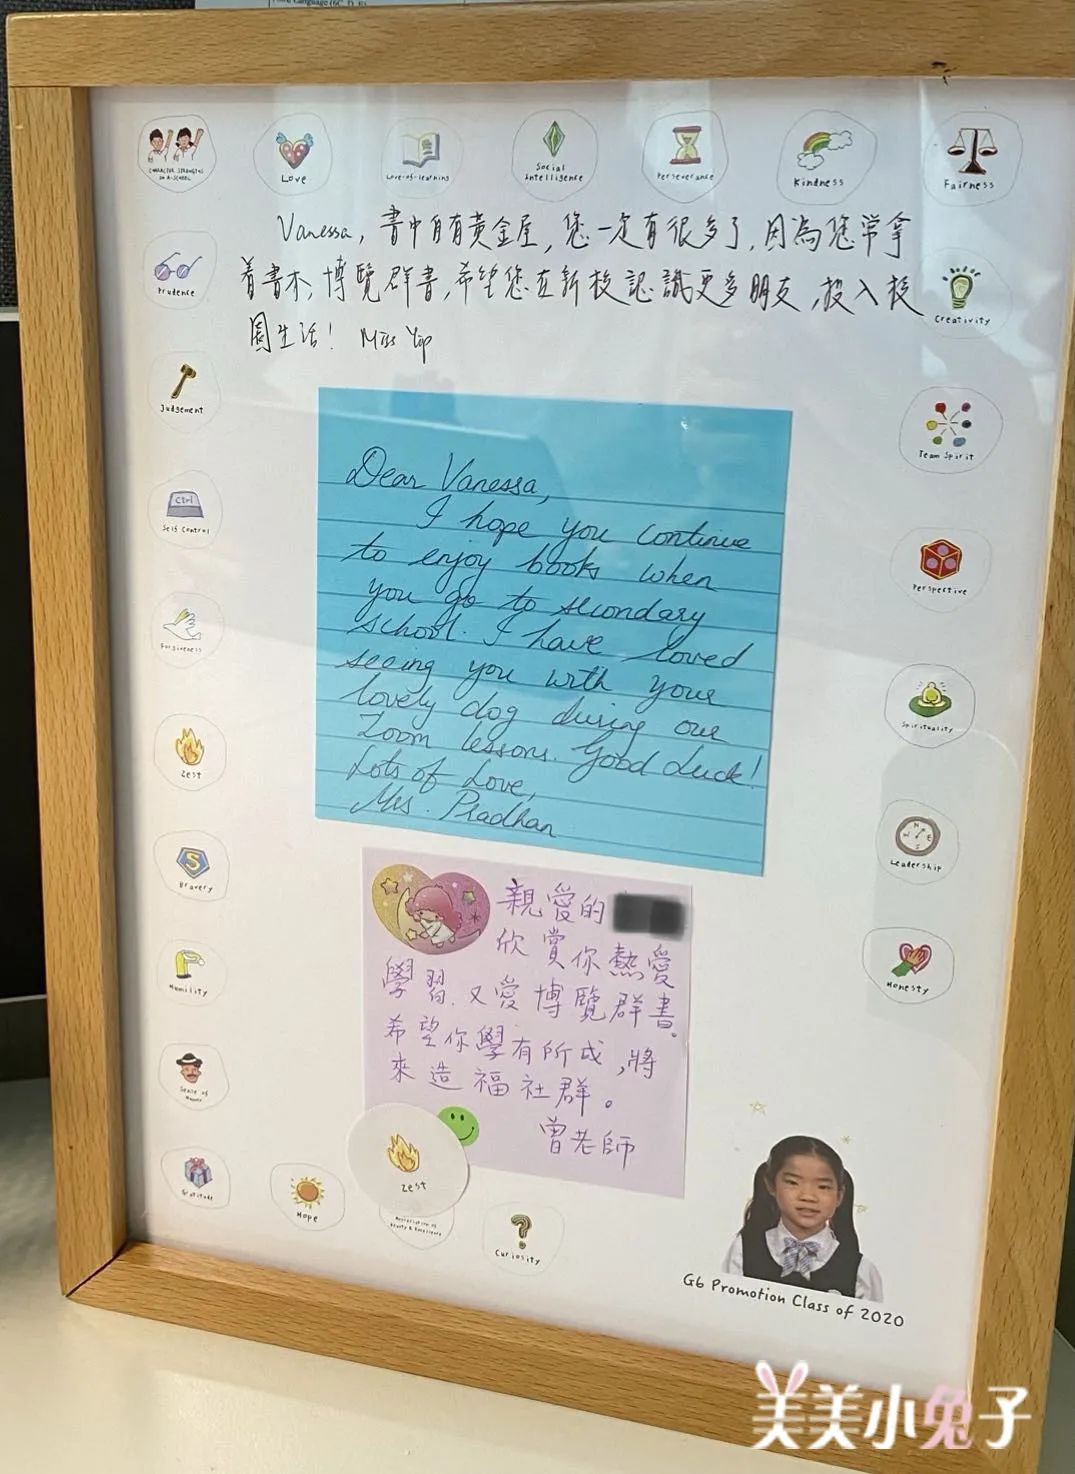 CHARACTER STRENGTHS
Love
Love-of-learning
Social
Intelligence
Perseverance
Kindness
Fairness
Vanessa, 書中自有黃金屋, 您一定有很多了, 因為您常拿
着書本, 博覽群書, 希望您在新校認識更多朋友, 投入校
園生活! Miss Yip
Prudence
Creativity
Judgement
Team Spirit
Ctrl
Self Control
Perspective
Forgiveness
Spirituality
Zest
Leadership
Bravery
Honesty
Humility
Sense of
Humor
Gratitude
Dear Vanessa,
I hope you continue
to enjoy books when
you go to secondary
school. I have loved
seeing you with your
lovely dog during our
Zoom lessons. Good Luck!
Lots of Love,
Mrs. Pradhan
親愛的
欣賞你熱愛
學習、又愛博覽群書。
希望你學有所成,將
來造福社群。
曾老師
Hope
Zest
Appreciation of
Beauty & Excellence
Curiosity
G6 Promotion Class of 2020
美美小兔子